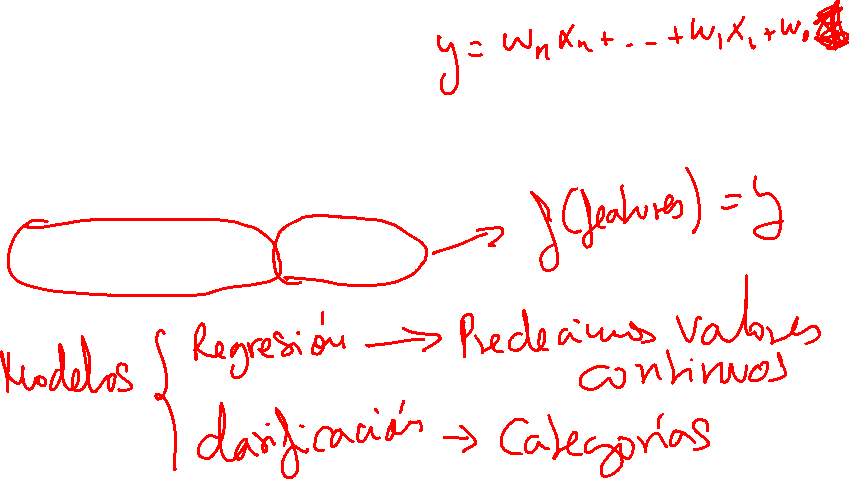 y = wₙxₙ + ... + w₁x₁ + w₀
f(features) = y
Modelos { Regresión → Predecimos valores continuos
clasificación → Categorías